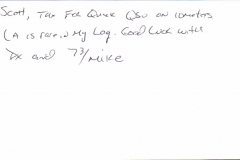 Scott, Tnx For Quick QSO on 10meters
LA is rare in My Log. Good Luck with
Dx and 73/Mike